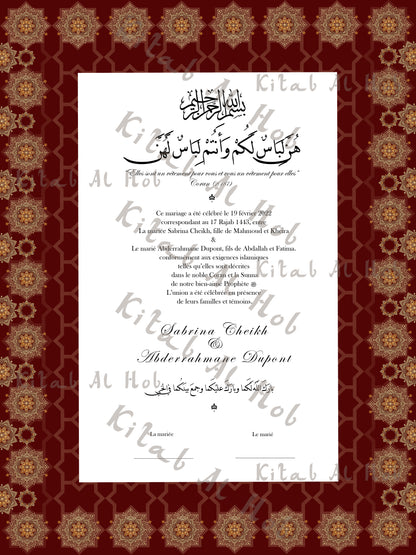 بسم الله الرحمن الرحيم
هُنَّ لِبَاسٌ لَكُمْ وَأَنْتُمْ لِبَاسٌ لَهُنَّ
"Elles sont un vêtement pour vous et vous un vêtement pour elles"
Coran
Ce mariage a été célébré le 19 février 2022
correspondant au 17 Rajab 1443, entre
La mariée Sabrina Cheikh, fille de Mahmoud et Kheira
&
Le marié Abderrahmane Dupont, fils de Abdallah et Fatima.
conformément aux exigences islamiques
telles qu'elles sont décrites
dans le noble Coran et la Sunna
de notre bien-aimé Prophète ﷺ
L'union a été célébrée en présence
de leurs familles et témoins.
Sabrina Cheikh
&
Abderrahmane Dupont
بارك الله لكما وبارك عليكما وجمع بينكما في الخير
La mariée
Le marié
Kitab Al Hob